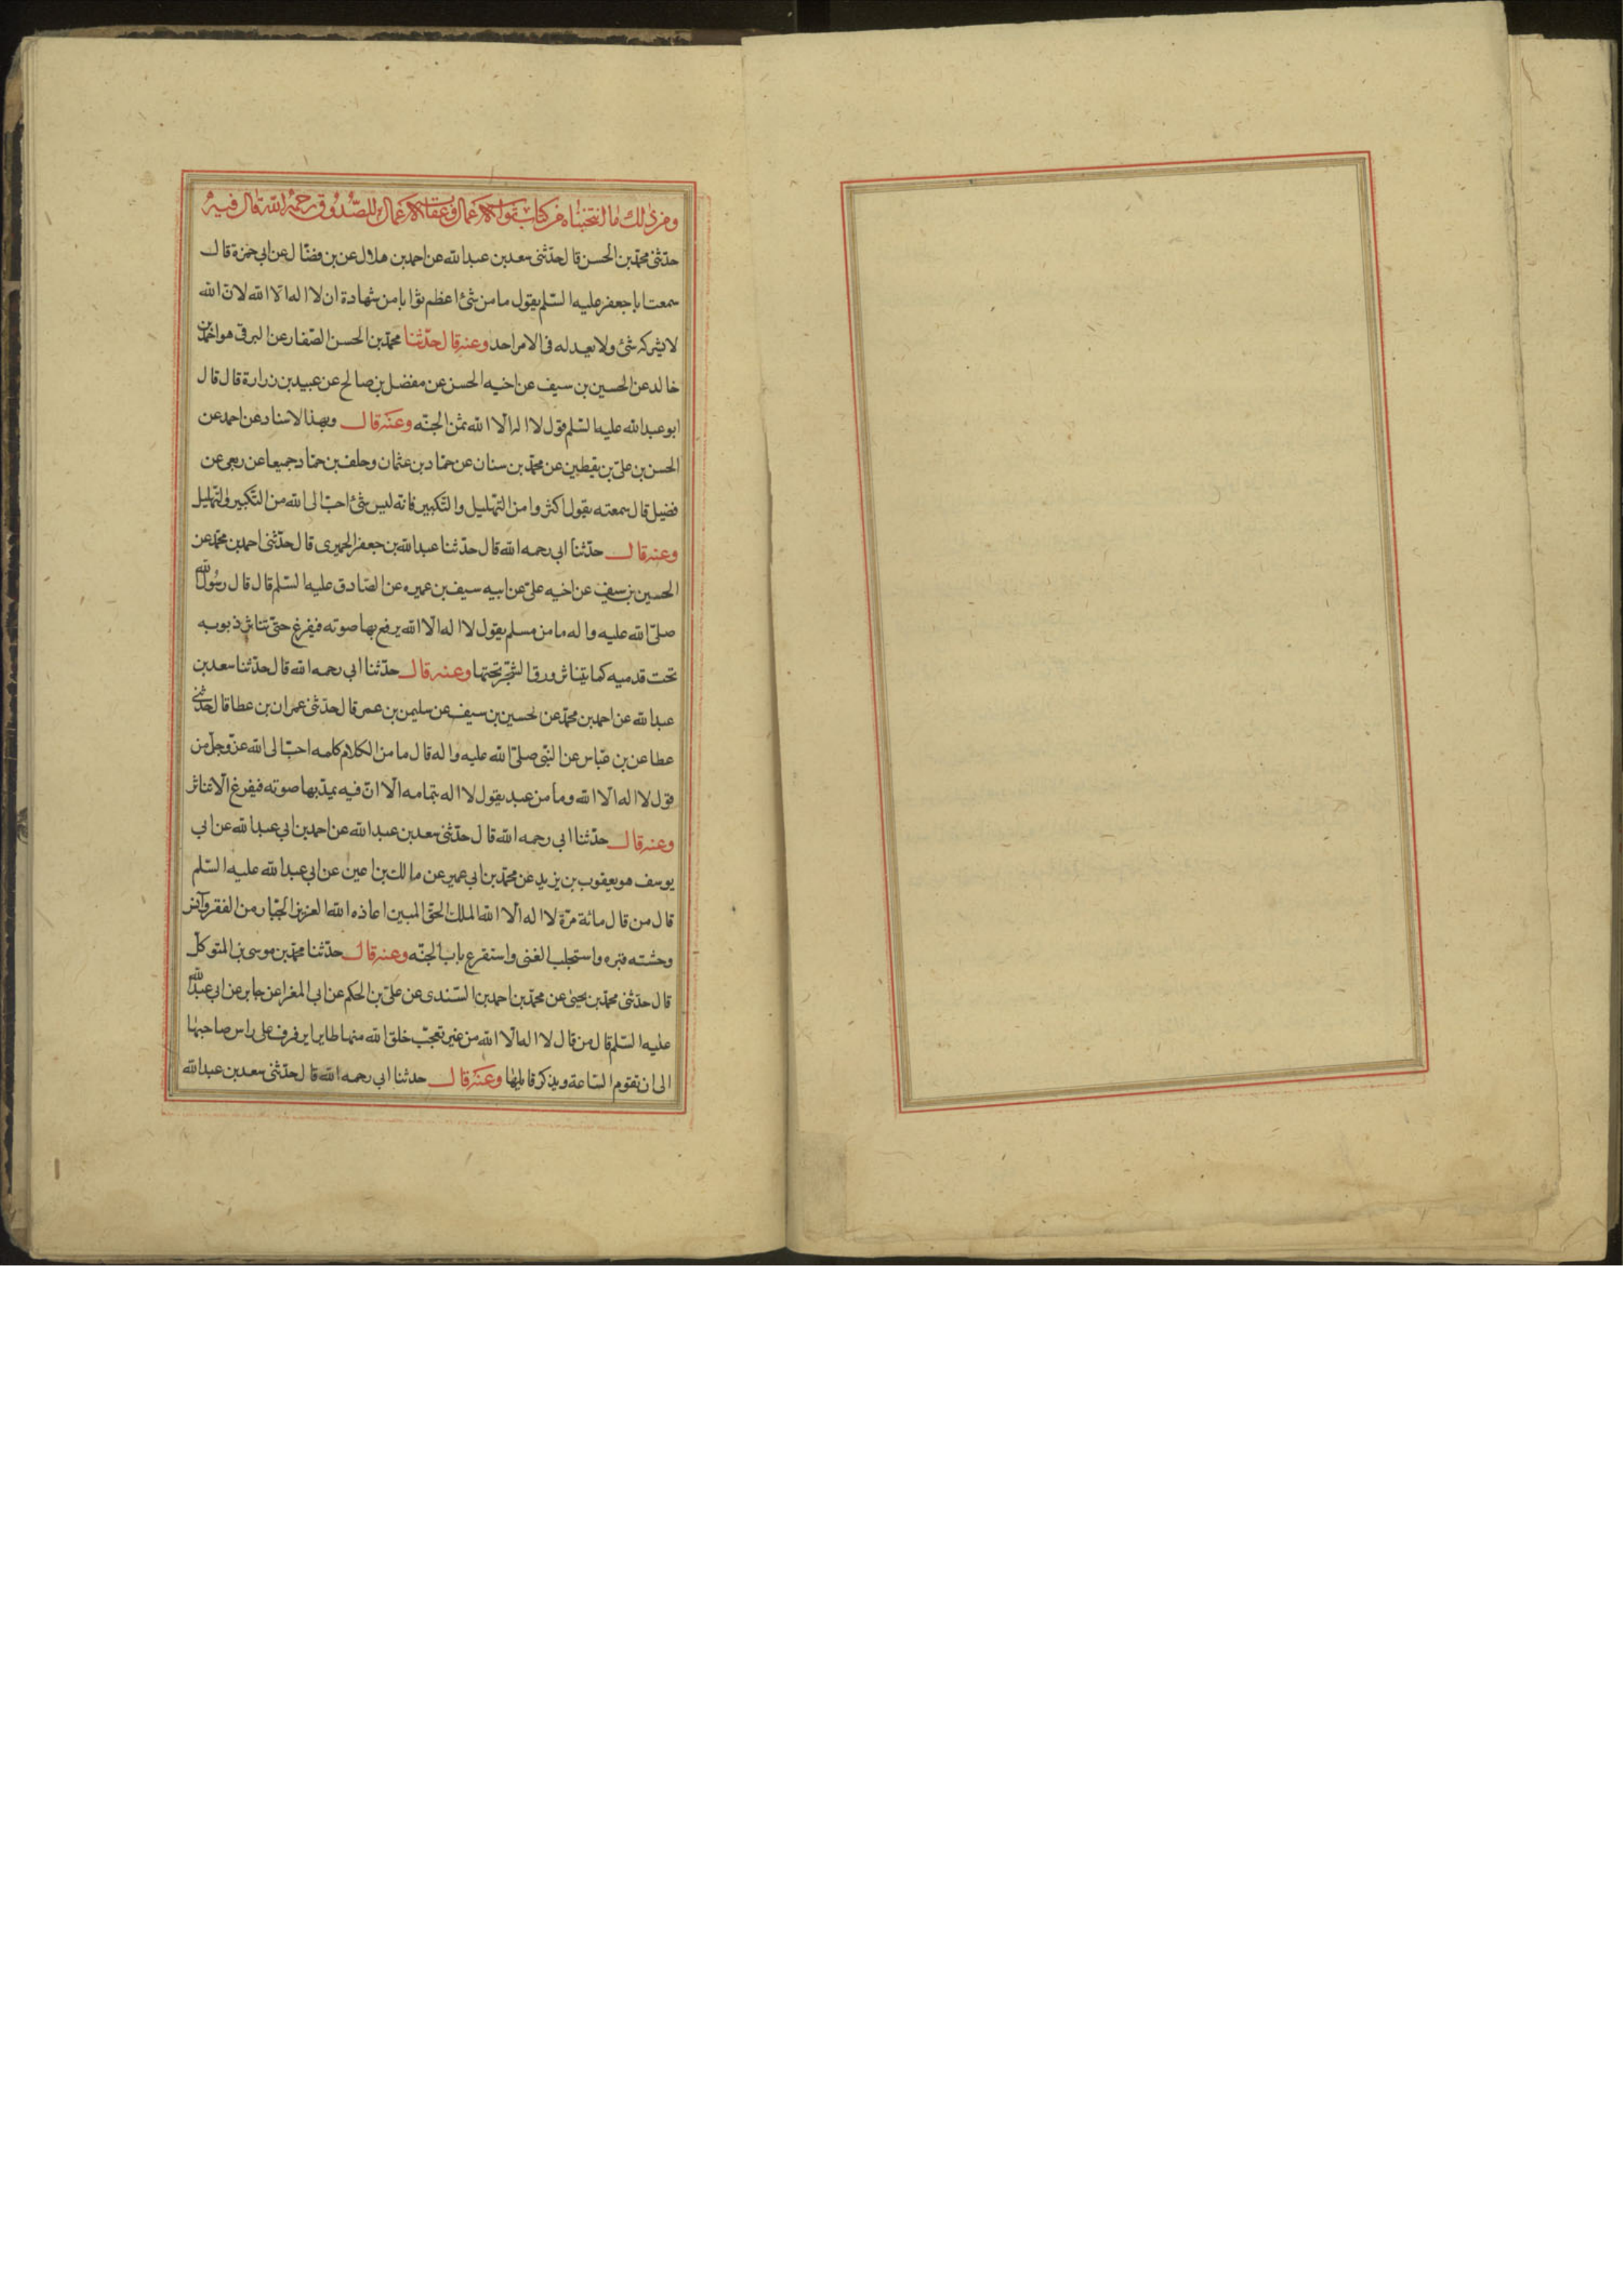 ومن ذلك ما انتخبناه من كتاب ثواب الاعمال وعقاب الاعمال للصدوق رحمه الله قال فيه
حدثنى محمد بن الحسن قال حدثنى سعد بن عبد الله عن احمد بن هلال عن بن فضال عن ابى حمزة قال
سمعت ابا جعفر عليه السلم يقول ما من شئ اعظم ثوابا من شهادة ان لا اله الا الله لان الله
لا يشركه شئ ولا يعدله فى الامر احد وعنه قال حدثنا محمد بن الحسن الصفار عن البرقى هو احمد بن
خالد عن الحسين بن سيف عن اخيه الحسن عن مفضل بن صالح عن عبيد بن زرارة قال قال
ابو عبد الله عليه السلم قول لا اله الا الله ثمن الجنه وعنه قال وبهذا الاسناد عن احمد عن
الحسن بن على بن يقطين عن محمد بن سنان عن حماد بن عثمان وخلف بن حماد جميعا عن ربعى عن
فضيل قال سمعته يقول اكثروا من التهليل والتكبير فانه ليس شئ احب الى الله من التكبير والتهليل
وعنه قال حدثنا ابى رحمه الله قال حدثنا عبد الله بن جعفر الحميرى قال حدثنى احمد بن محمد عن
الحسين بن سيف عن اخيه على عن ابيه سيف بن عميره عن الصادق عليه السلم قال قال رسول الله
صلى الله عليه واله ما من مسلم يقول لا اله الا الله يرفع بها صوته فيفرغ حتى تناثر ذنوبه
تحت قدميه كما يتناثر ورق الشجر تحتها وعنه قال حدثنا ابى رحمه الله قال حدثنا سعد بن
عبد الله عن احمد بن محمد عن الحسين بن سيف عن سليمن بن عمر قال حدثنى عمران بن عطا قال حدثنى
عطا عن بن عباس عن النبى صلى الله عليه واله قال ما من الكلام كلمه احب الى الله عز وجل من
قول لا اله الا الله وما من عبد يقول لا اله بتمامه الا ان فيه يمد بها صوته فيفرغ الا تناثر
وعنه قال حدثنا ابى رحمه الله قال حدثنى سعد بن عبد الله عن احمد بن ابى عبد الله عن ابى
يوسف هو يعقوب بن يزيد عن محمد بن ابى عمير عن مالك بن اعين عن ابى عبد الله عليه السلم
قال من قال مائة مرة لا اله الا الله الملك الحق المبين اعاذه الله العزيز الجبار من الفقر وآنس
وحشته قبره واستجلب الغنى واستقرع باب الجنه وعنه قال حدثنا محمد بن موسى بن المتوكل
قال حدثنى محمد بن يحيى عن محمد بن احمد بن السندى عن على بن الحكم عن ابى المغرا عن جابر عن ابى عبد الله
عليه السلم قال من قال لا اله الا الله من غير تعجب خلق الله منها طايرا يرفرف على راس صاحبها
الى ان تقوم الساعة ويذكر قايلها وعنه قال حدثنا ابى رحمه الله قال حدثنى سعد بن عبد الله